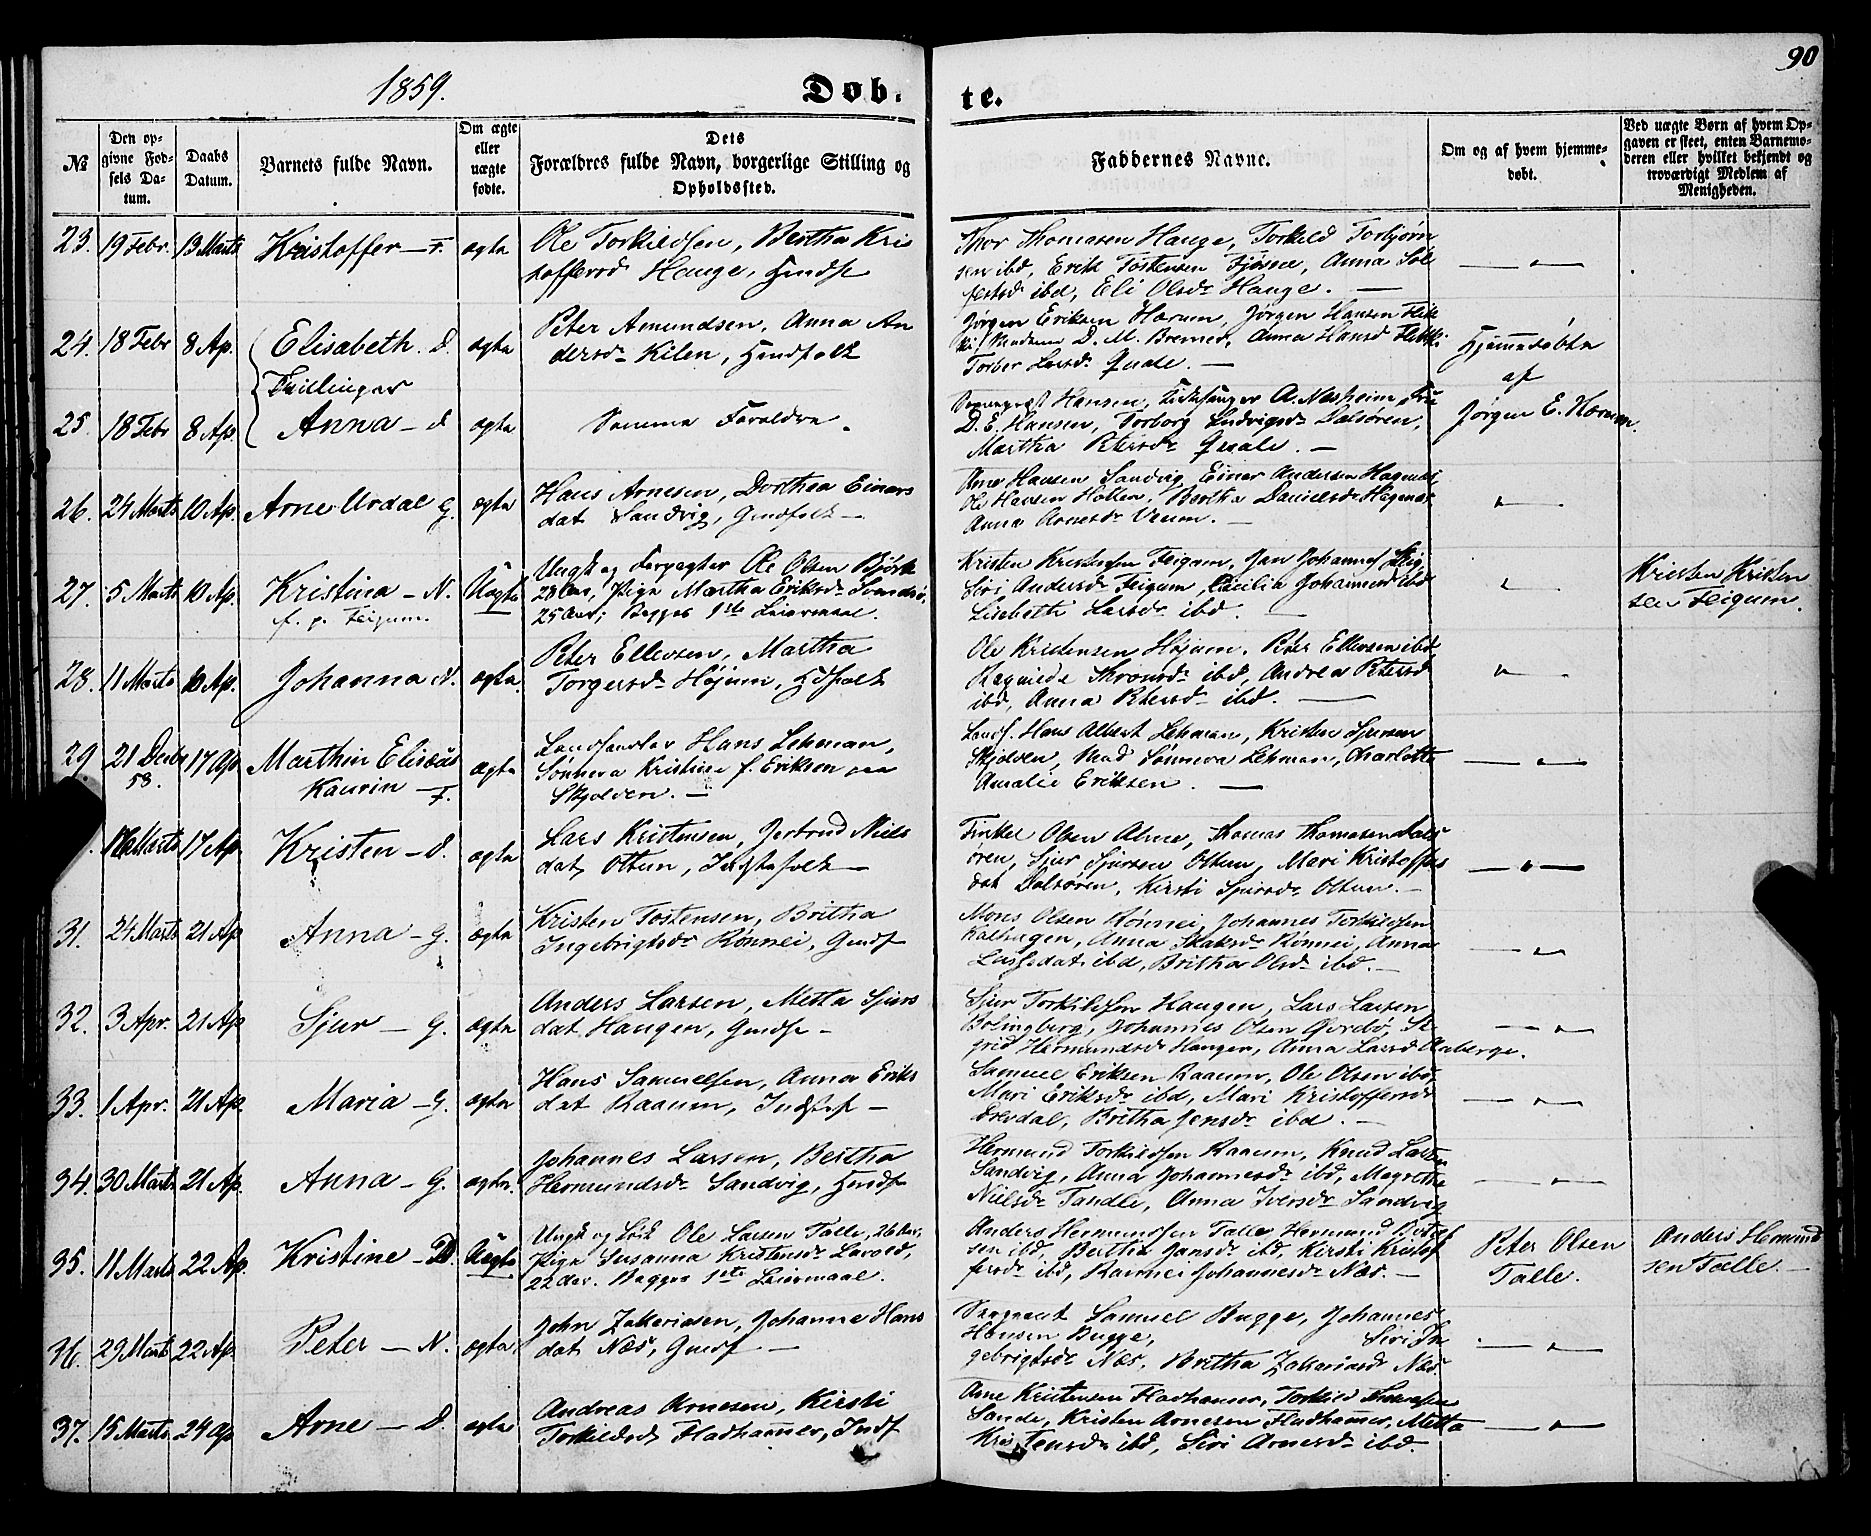 1859.
Døb. te.
90
№
Den opgivne Fødsels Datum.
Daabs Datum.
Barnets fulde Navn.
Om ægte eller uægte fødte.
Dets Forældres fulde Navn, borgerlige Stilling og Opholdssted.
Faddernes Navne.
Om og af hvem hjemmedøbt.
Ved uægte Børn af hvem Opgaven er skeet, enten Barnemoderen eller hvilket bekjendt og troværdigt Medlem af Menigheden.
23. 19 Febr. 13 Marts Kristoffer – F. ægte
Ole Torkildsen, Bertha Kris
toffersd Hauge,
Thor Thomasen Hauge, Torkild Torbjørn
sen ibd, Erik Tostensen Fjøsne, Anna Sol
festsd ibd, Eli Olsdr Hauge. —
24. 18 Febr 8 Ap. Elisabeth. D. ægte
Peter Amundsen, Anna An
dersdr Kilen,
Jørgen Eriksen Hærum, Jørgen Hansen Flik
ki, Madame D. M. Bremer, Anna Hansd Flikki
Torber Larsdr Quale. —
Hjemmedøbte
af
Jørgen E. Hærum.
Tvillinger
25. 18 Febr 8 Ap. Anna – D ægte
Samme Forældre.
Sogneprest Hansen, Kirkesanger A. Næsheim, Fru
D. E. Hansen, Torborg Ludvigsdr Dalsøren,
Martha Petersdr Quale. —
26. 24 Marts 10 Ap. Arne Urdal G. ægte
Hans Arnesen, Dorthea Einars
dat Sandvig, Gmdfolk —
Arne Hansen Sandvig, Einar Andersen Hagenæs,
Ole Hansen Holten, Bertha Danielsdr Hagenæs
Anna Arnesdr Ureum. —
27. 5 Marts 10 Ap. Kristina – N. Uægte
f. p. Feigum.
Ungk og Forpagter Ole Olsen Bjørk
28 Aar, Pige Martha Eriksdr
25 Aar; Begges 1ste Leiermaal.
Kristen Kristensen Feigum, Jan Johannes
Siri Andersdr Feigum, Cecilia Johannesd ibd
Lisabeth Larsdr ibd.
Kristen Kristen
sen Feigum.
28. 11 Marts 10 Ap. Johanna N. ægte.
Peter Ellevsen, Martha
Torgersdr Højum,
Ole Kristensen Højum, Peter Ellevsen ibd,
Ragnilde ibd, Andrea Petersd
ibd, Anna Petersdr ibd. —
29 21 Decbr 58. 17 Ap Marthin Elisæus
Kaurin – F. ægte
Landhandler Hans Lehman,
Sønneva Kristine f. Eriksen paa
Skjolden. —
Landh. Hans Albert Lehman, Kristen Sjursen
Skjolden, Mad Sønneva Lehman, Charlotte
Amalie Eriksen. —
16 Marts 17 Ap Kristen – D. ægte
Lars Kristensen, Gjertrud Niels
dat, Ottum,
Tinkel Olsen Alme, Thomas Thomasen Dals
øren, Sjur Sjursen Ottum, Mari Kristoffers
dat Dalsøren, Kirsti Sjursdr Ottum. —
31. 24 Marts 21 Ap Anna – G. ægte
Kristen Tostensen, Britha
Ingebrigtsdr Rønnei, Gmdf
Mons Olsen Rønnei, Johannes Torkildsen
Kalhagen, Anna Rønnei, Anna
Larsdat ibd, Britha Olsdr ibd. —
32. 3 Apr. 21 Ap Sjur – G. ægte
Anders Larsen, Metta Sjurs
dat Haugen, Gmdf –
Sjur Torkildsen Haugen, Lars Larsen
Bolingberg, Johannes Olsen Øvrebø, Si
grid Hermundsdr Haugen, Anna Larsd Aaberge.
33. 1 Apr. 21 Ap. Maria – G. ægte
Hans Samuelsen, Anna Eriks
dat Raaum, Indstf –
Samuel Eriksen Raaum, Ole Olsen ibd,
Mari Eriksdr ibd, Mari Kristoffersdr
Drevdal, Britha Jensdr ibd. —
34. 30 Marts 21 Ap. Anna – G. ægte.
Johannes Larsen, Bertha
Hermundsdr Sandvig,
Hermund Torkildsen Raaum, Knud Larsen
Sandvig, Anna Johannesdr ibd, Magrethe
Nielsdr Tandle, Anna Iversdr Sandvig
35. 11 Marts 22 Ap. Kristine – D. Uægte
Ungk og Ole Larsen Talle, 26 Aar,
Pige Susanna Kristensdr Lavold,
22 Aar. Begges 1ste Leiermaal.
Anders Hermundsen Talle, Hermund
sen ibd, Berthe Jansdr ibd, Kirsti Kristof
fersdr ibd, Ragnei Johannesdr Næs. —
Peter Olsen
Talle.
Anders Hermund
sen Talle. —
36. 29 Marts 22 Ap. Peter – N. ægte
John Zakariasen, Johanne Hans
dat Næs, Gmdf —
Sergeant Samuel Bugge, Johannes
Hansen Bugge, Siri In
gebrigtsdr Næs, Britha Zakariasd Næs.
37. 15 Marts 24 Ap Arne – D. ægte
Andreas Arnesen, Kirsti
Torkildsd Fladhammer, Indf
Arne Kristensen Fladhammer, Torkild
Sande, Kristen Arnesen Fladhammer, Metta
Kristensdr ibd, Siri Arnesdr ibd.